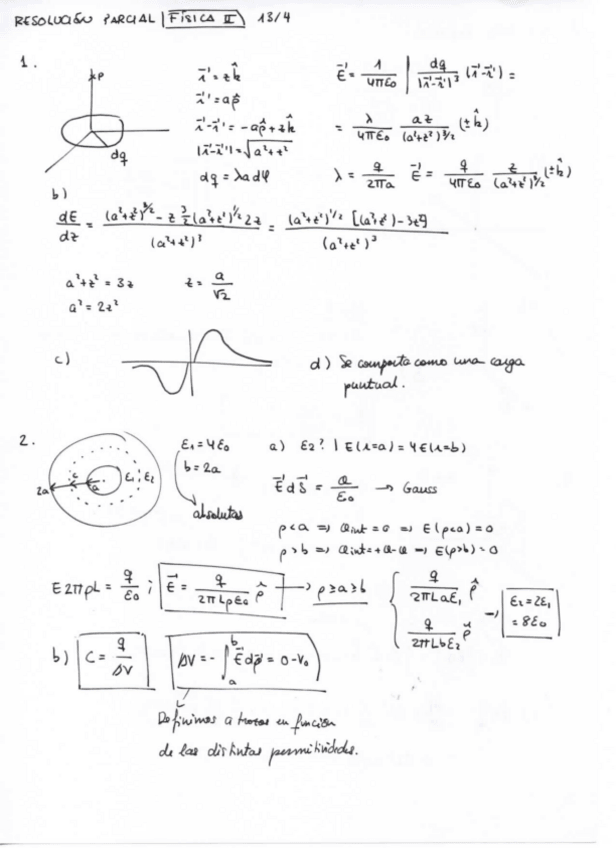 RESOLUCIÓN PARCIAL | FÍSICA II 13/4
1.
P
dq
r⃗ = z k̂
r⃗' = a ρ̂
r⃗-r⃗' = -aρ̂ + z k̂
|r⃗-r⃗'| = √(a²+z²)
dq = λ a dφ
E⃗ = 1/(4πε₀) ∫ dq/|r⃗-r⃗'|³ (r⃗-r⃗') =
= λ/(4πε₀) az/(a²+z²)^(3/2) (±k̂)
λ = q/(2πa) E⃗ = q/(4πε₀) z/(a²+z²)^(3/2) (±k̂)
b)
dE/dz = ((a²+z²)^(3/2) - z 3/2 (a²+z²)^(1/2) 2z)/(a²+z²)³ = ((a²+z²)^(1/2) [(a²+z²) - 3z²])/(a²+z²)³
a²+z² = 3z z = a/√2
a² = 2z²
c)
d) Se comporta como una carga
puntual.
2.
2a c a ε₁ ε₂
ε₁ = 4ε₀
b = 2a
absolutas
a) ε₂? | E(r=a) = 4E(r=b)
E⃗ dS⃗ = Q/ε₀ → Gauss
ρ<a ⇒ Qint = 0 ⇒ E(ρ<a) = 0
ρ>b ⇒ Qint = +Q-Q ⇒ E(ρ>b) = 0
E2πρL = q/ε₀ ; E⃗ = q/(2πLρε₀) ρ̂ → ρ≥a≥b { q/(2πLaε₁) ρ̂
q/(2πLbε₂) ρ̂ → ε₂ = 2ε₁
= 8ε₀
b) C = q/ΔV ΔV = -∫ₐᵇ E⃗ dρ⃗ = 0 - V₀
Definimos a trozos en función
de las distintas permitividades.